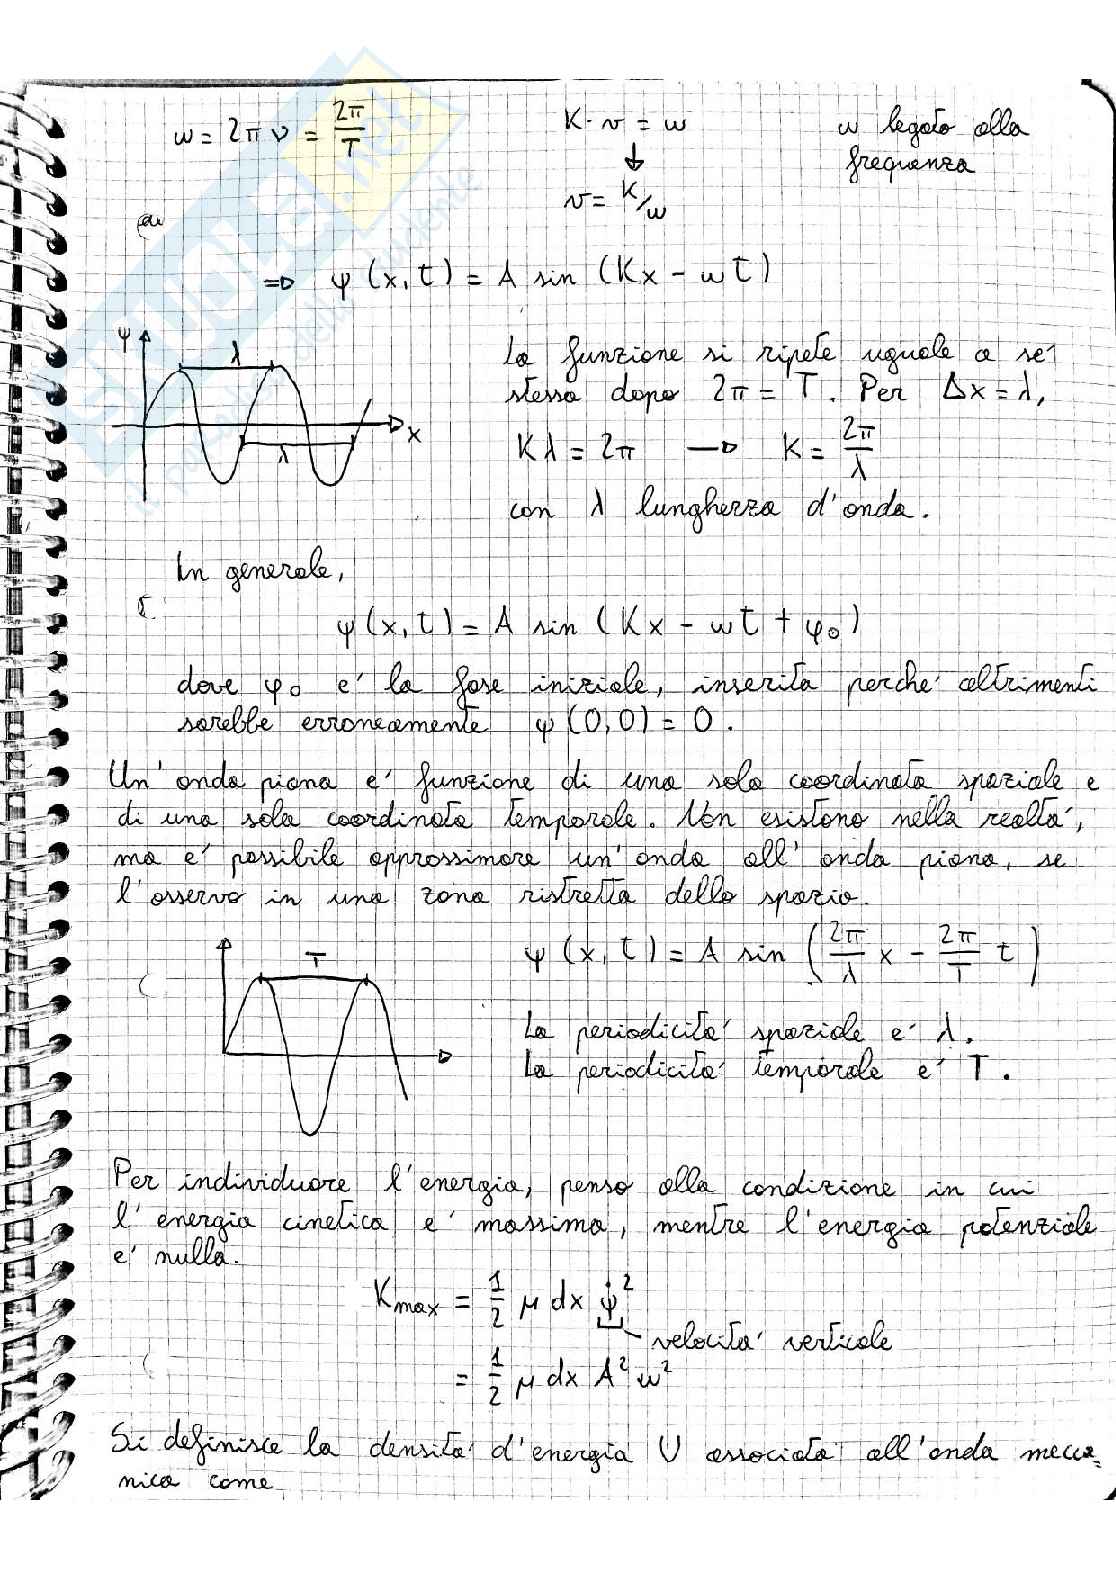 ω = 2πν = 2π/T
K·v = ω
↓
v = K/ω
ω legato alla
frequenza
⇒ ψ(x,t) = A sin (Kx - ωt)
ψ
λ
x
λ
La funzione si ripete uguale a se'
stessa dopo 2π = T. Per Δx = λ,
Kλ = 2π → K = 2π/λ
con λ lunghezza d'onda.
In generale,
ψ(x,t) = A sin (Kx - ωt + φ₀)
dove φ₀ e' la fase iniziale, inserita perche' altrimenti
sarebbe erroneamente ψ(0,0) = 0.
Un'onda piana e' funzione di una sola coordinata spaziale e
di una sola coordinata temporale. Non esistono nella realta',
ma e' possibile approssimare un'onda all'onda piana, se
l'osservo in una zona ristretta dello spazio.
T
ψ(x,t) = A sin (2π/λ x - 2π/T t)
La periodicita' spaziale e' λ.
La periodicita' temporale e' T.
Per individuare l'energia, penso alla condizione in cui
l'energia cinetica e' massima, mentre l'energia potenziale
e' nulla.
Kmax = 1/2 μ dx ψ̇²
velocita' verticale
= 1/2 μ dx A² ω²
Si definisce la densita' d'energia U associata all'onda mecca=
nica come